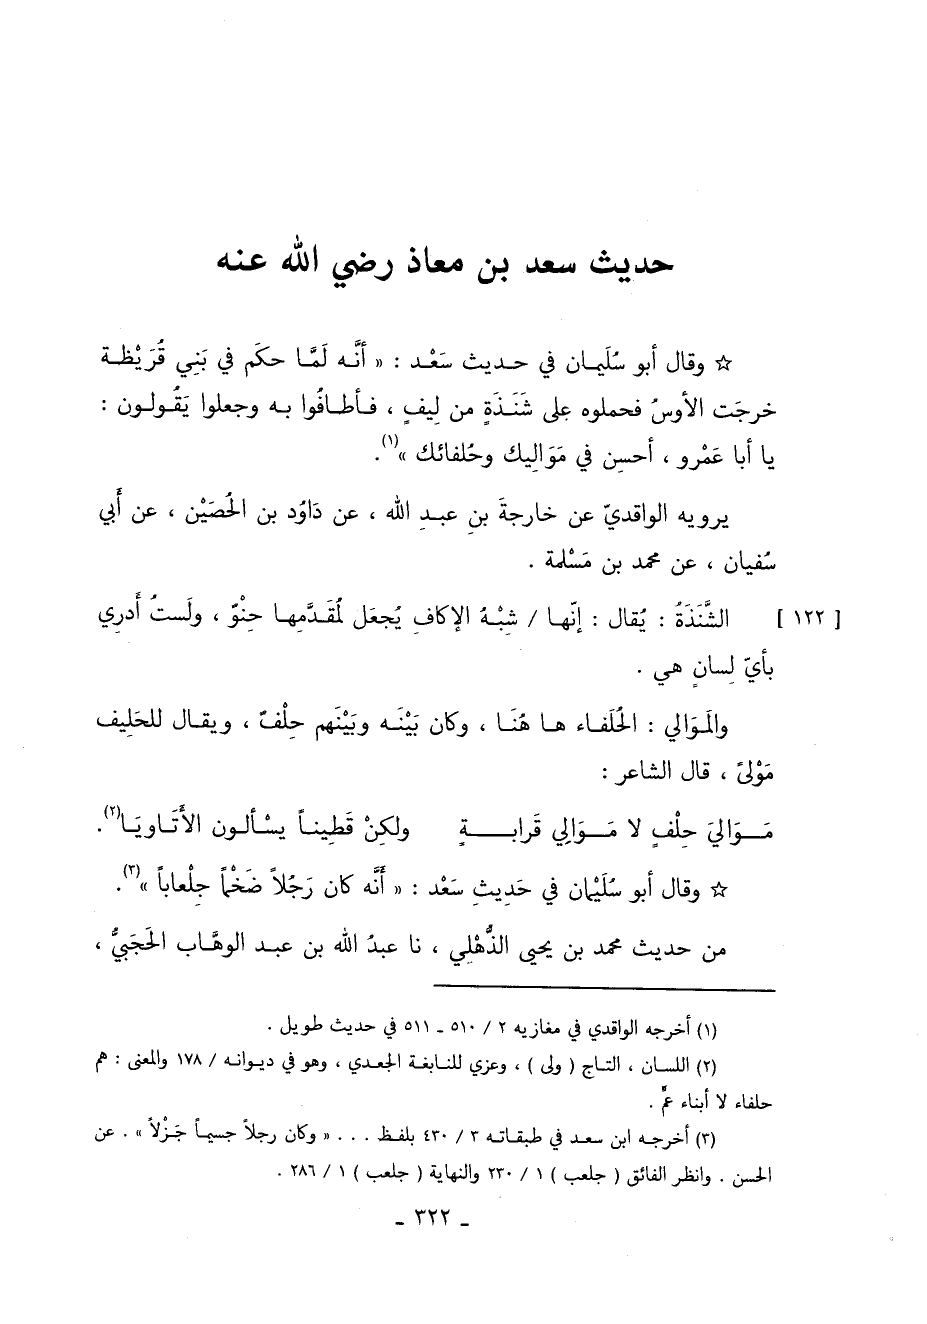 حديث سعد بن معاذ رضي الله عنه
☆ وقال أبو سُليمان في حديث سَعْد : « أنَّه لَمَّا حكَم في بَنِي قُرَيْظة
خرجَت الأوسُ فحملوه على شَنَذَةٍ من لِيفٍ ، فأطافُوا به وجعلوا يَقُولون :
يا أبا عَمْرو ، أحسِن في مَوَاليك وحُلفائك »(١).
يرويه الواقديّ عن خارجةَ بنِ عبدِ الله ، عن دَاوُد بن الحُصَيْن ، عن أَبي
سُفيان ، عن محمد بن مَسْلمة .
[ ١٢٢ ] الشَّنَذَةُ : يُقال : إنّها / شِبْهُ الإكافِ يُجعَل لمُقَدَّمِها حِنْوٌ ، ولَستُ أَدري
بأيّ لِسانٍ هي .
والمَوَالي : الحُلَفاء ها هُنَا ، وكان بَيْنَه وبَيْنَهم حِلْفٌ ، ويقال للحَليف
مَوْلىً ، قال الشاعر :
مَوَاليَ حِلْفٍ لا مَوَالِي قَرابةٍ ولكنْ قَطِيناً يسْألون الأَتَاويَا(٢).
☆ وقال أبو سُلَيْمان في حَدِيثِ سَعْد : « أنَّه كان رَجُلاً ضَخْماً جِلْعاباً »(٣).
من حديث محمد بن يحيى الذُّهْلي ، نا عبدُ الله بن عبد الوهَّاب الحَجَبيُّ ،
(١) أخرجه الواقدي في مغازيه ٢ / ٥١٠ ـ ٥١١ في حديث طويل .
(٢) اللسان ، التاج ( ولى ) ، وعزي للنابغة الجعدي ، وهو في ديوانه / ١٧٨ والمعنى : هم
حلفاء لا أبناء عمٍّ .
(٣) أخرجه ابن سعد في طبقاته ٣ / ٤٣٠ بلفظ . . . « وكان رجلاً جسيماً جَزْلاً » . عن
الحسن . وانظر الفائق ( جلعب ) ١ / ٢٣٠ والنهاية ( جلعب ) ١ / ٢٨٦ .
ـ ٣٢٢ ـ